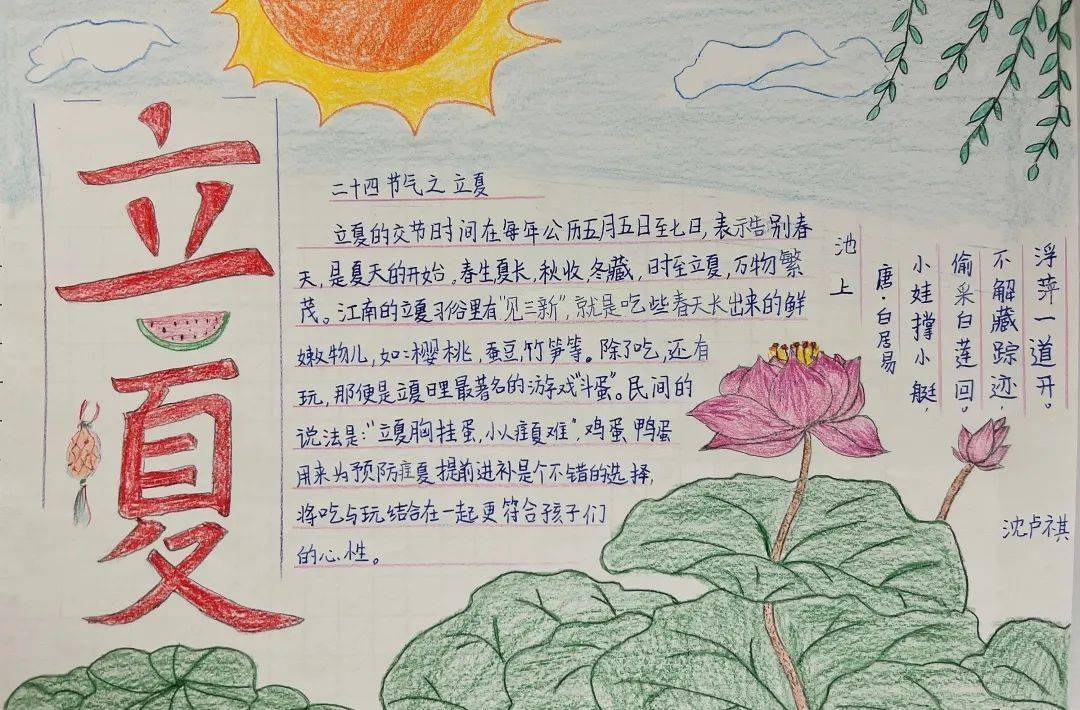 立夏
二十四节气之立夏
立夏的交节时间在每年公历五月五日至七日,表示告别春
天,是夏天的开始。春生,夏长,秋收,冬藏,时至立夏,万物繁
茂。江南的立夏习俗里有“见三新”,就是吃些春天长出来的鲜
嫩物儿,如:樱桃,蚕豆,竹笋等。除了吃,还有
玩,那便是立夏日里最著名的游戏“斗蛋”。民间的
说法是:“立夏胸挂蛋,小人疰夏难”,鸡蛋,鸭蛋
用来为预防疰夏提前进补是个不错的选择,
将吃与玩结合在一起更符合孩子们
的心性。
池上
唐·白居易
小娃撑小艇,
偷采白莲回。
不解藏踪迹,
浮萍一道开。
沈卢祺